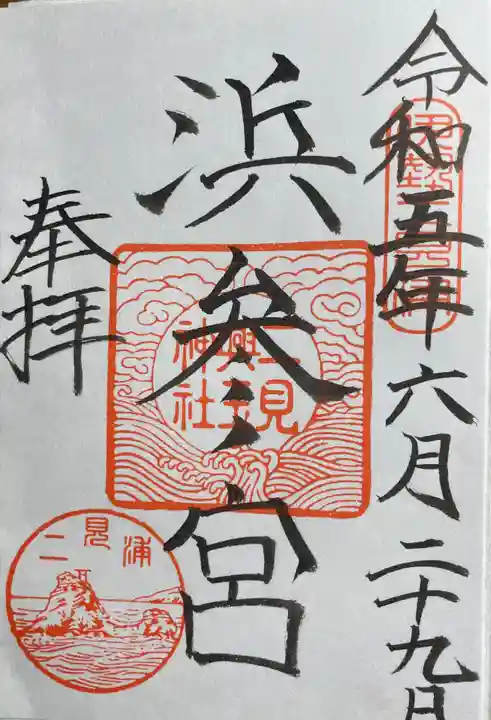 令和五年六月二十九日
浜参宮
奉拝
二見興玉神社
二見浦